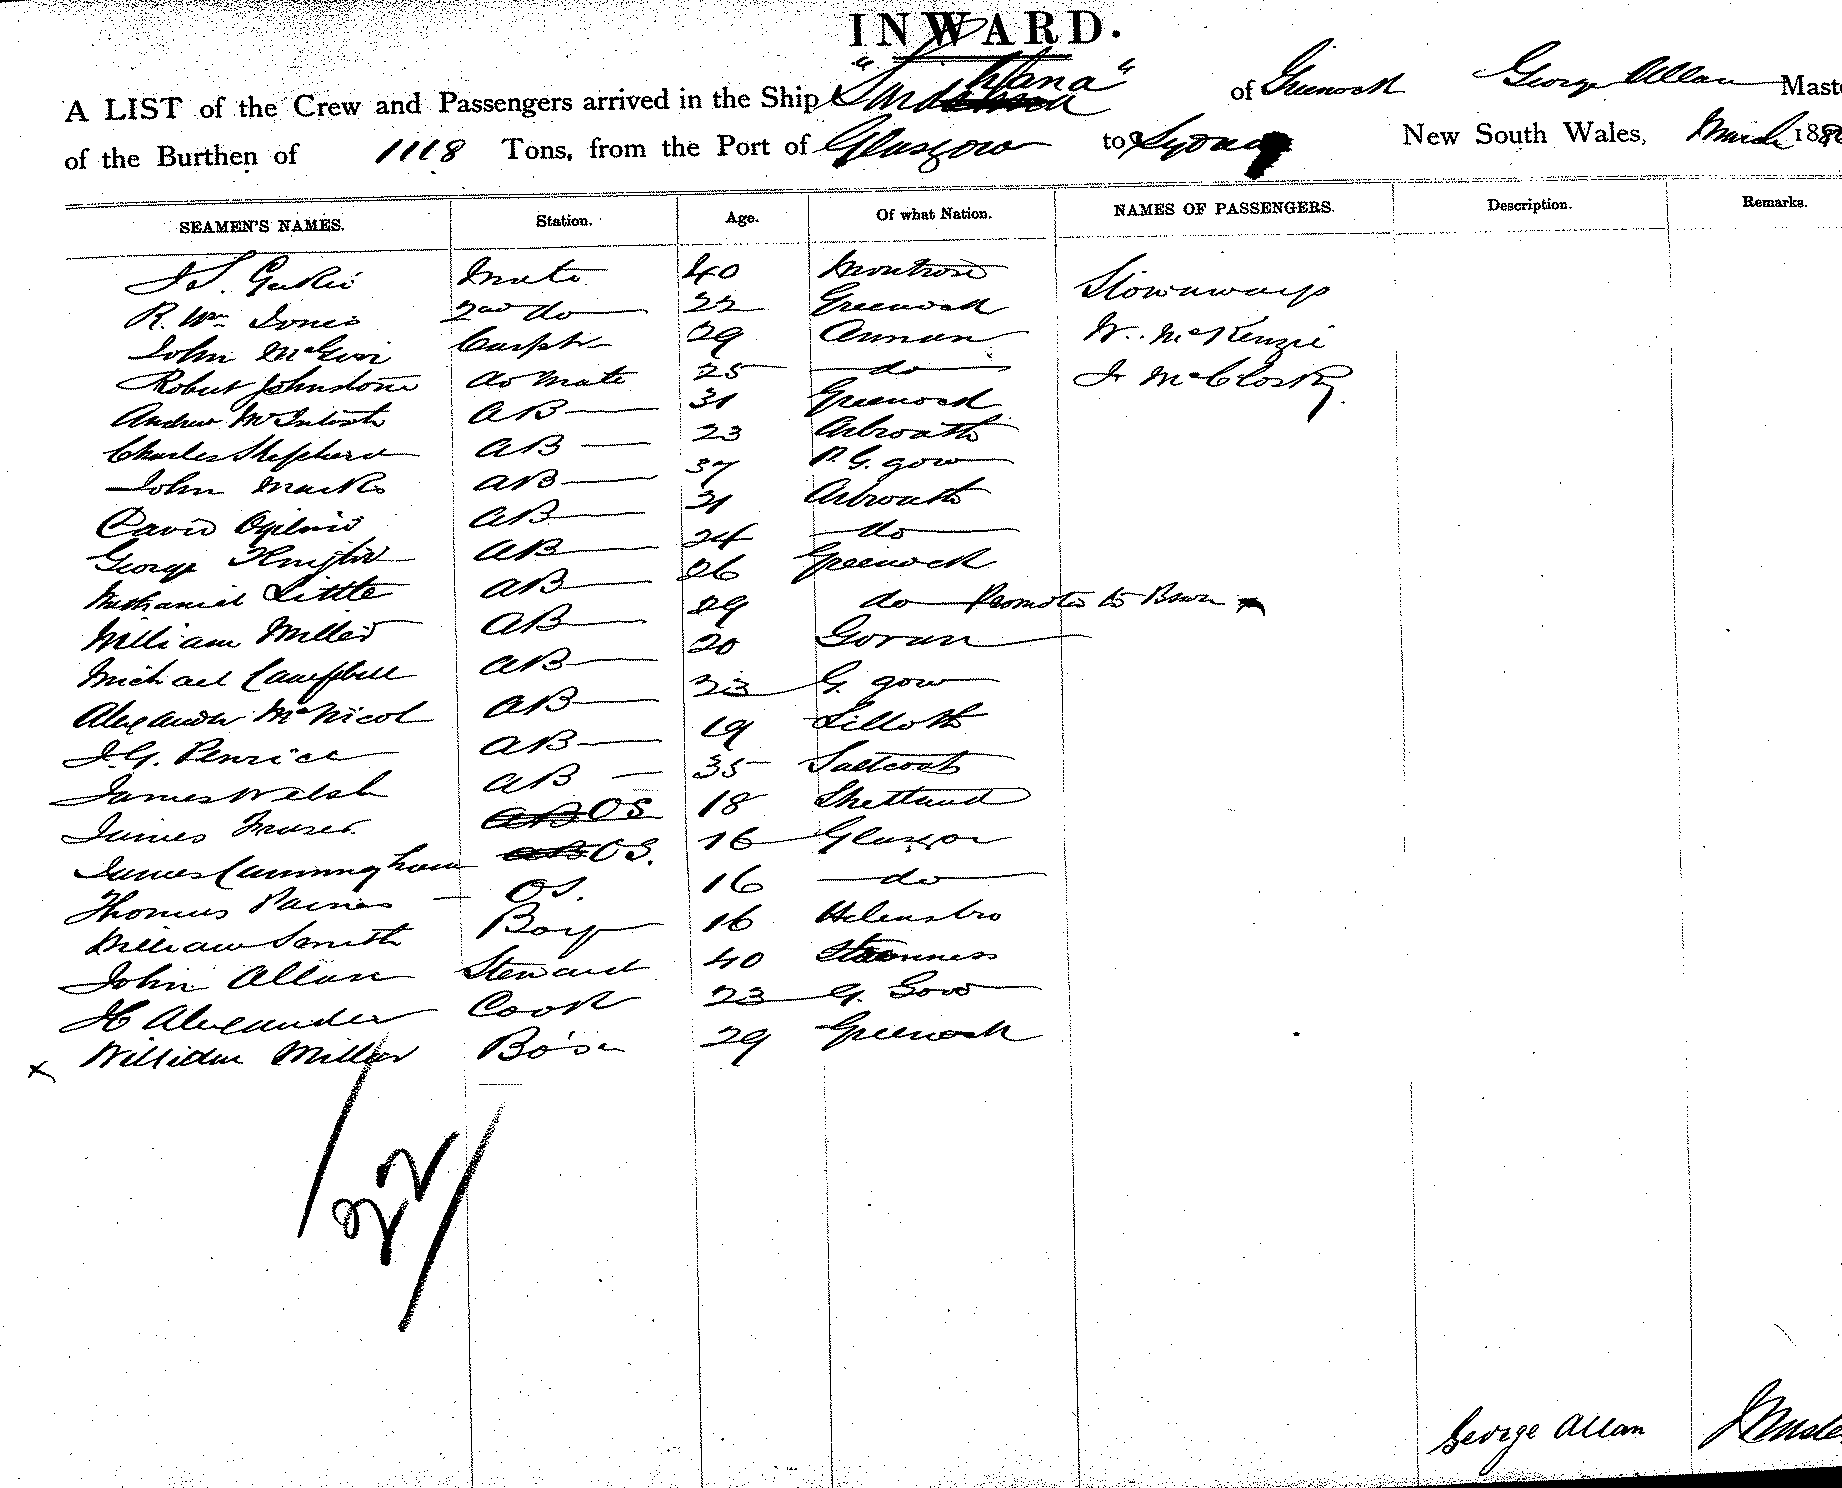 INWARD.
A LIST of the Crew and Passengers arrived in the Ship of Greenock George Allan
of the Burthen of 1118 Tons, from the Port of Glasgow to Sydney New South Wales, March
SEAMEN'S NAMES. Station. Age. Of what Nation. NAMES OF PASSENGERS. Description. Remarks.
Mate 40 Montrose Stowaways
R. Wm Jones 2nd do 22 Greenock
John Carptr 29 Annan W. McKenzie
Robert Johnstone do Mate 25 do J McClosky
Andrew McIntosh AB 31 Greenock
Charles Shepherd AB 23 Arbroath
John Marks AB 37 P. G. gow
David Ogilvie AB 21 Arbroath
George AB 24 do
Nathaniel Little AB 26 Greenock
William Miller AB 29 do Promoted to Bosn
Michael Campbell AB 20 Govan
Alexander McNicol AB 23 G. gow
J. G. Penrice AB 19 Silloth
James Welsh AB 35 Saltcoats
James Fraser AB OS 18 Shetland
James Cunningham AB OS. 16 Glasgow
Thomas OS. 16 do
William Smith Boy 16 Helensbro
John Allan Steward 40 Stromness
H Alexander Cook 23 G. Gow
x William Miller Bo'sn 29 Greenock
22
George Allan